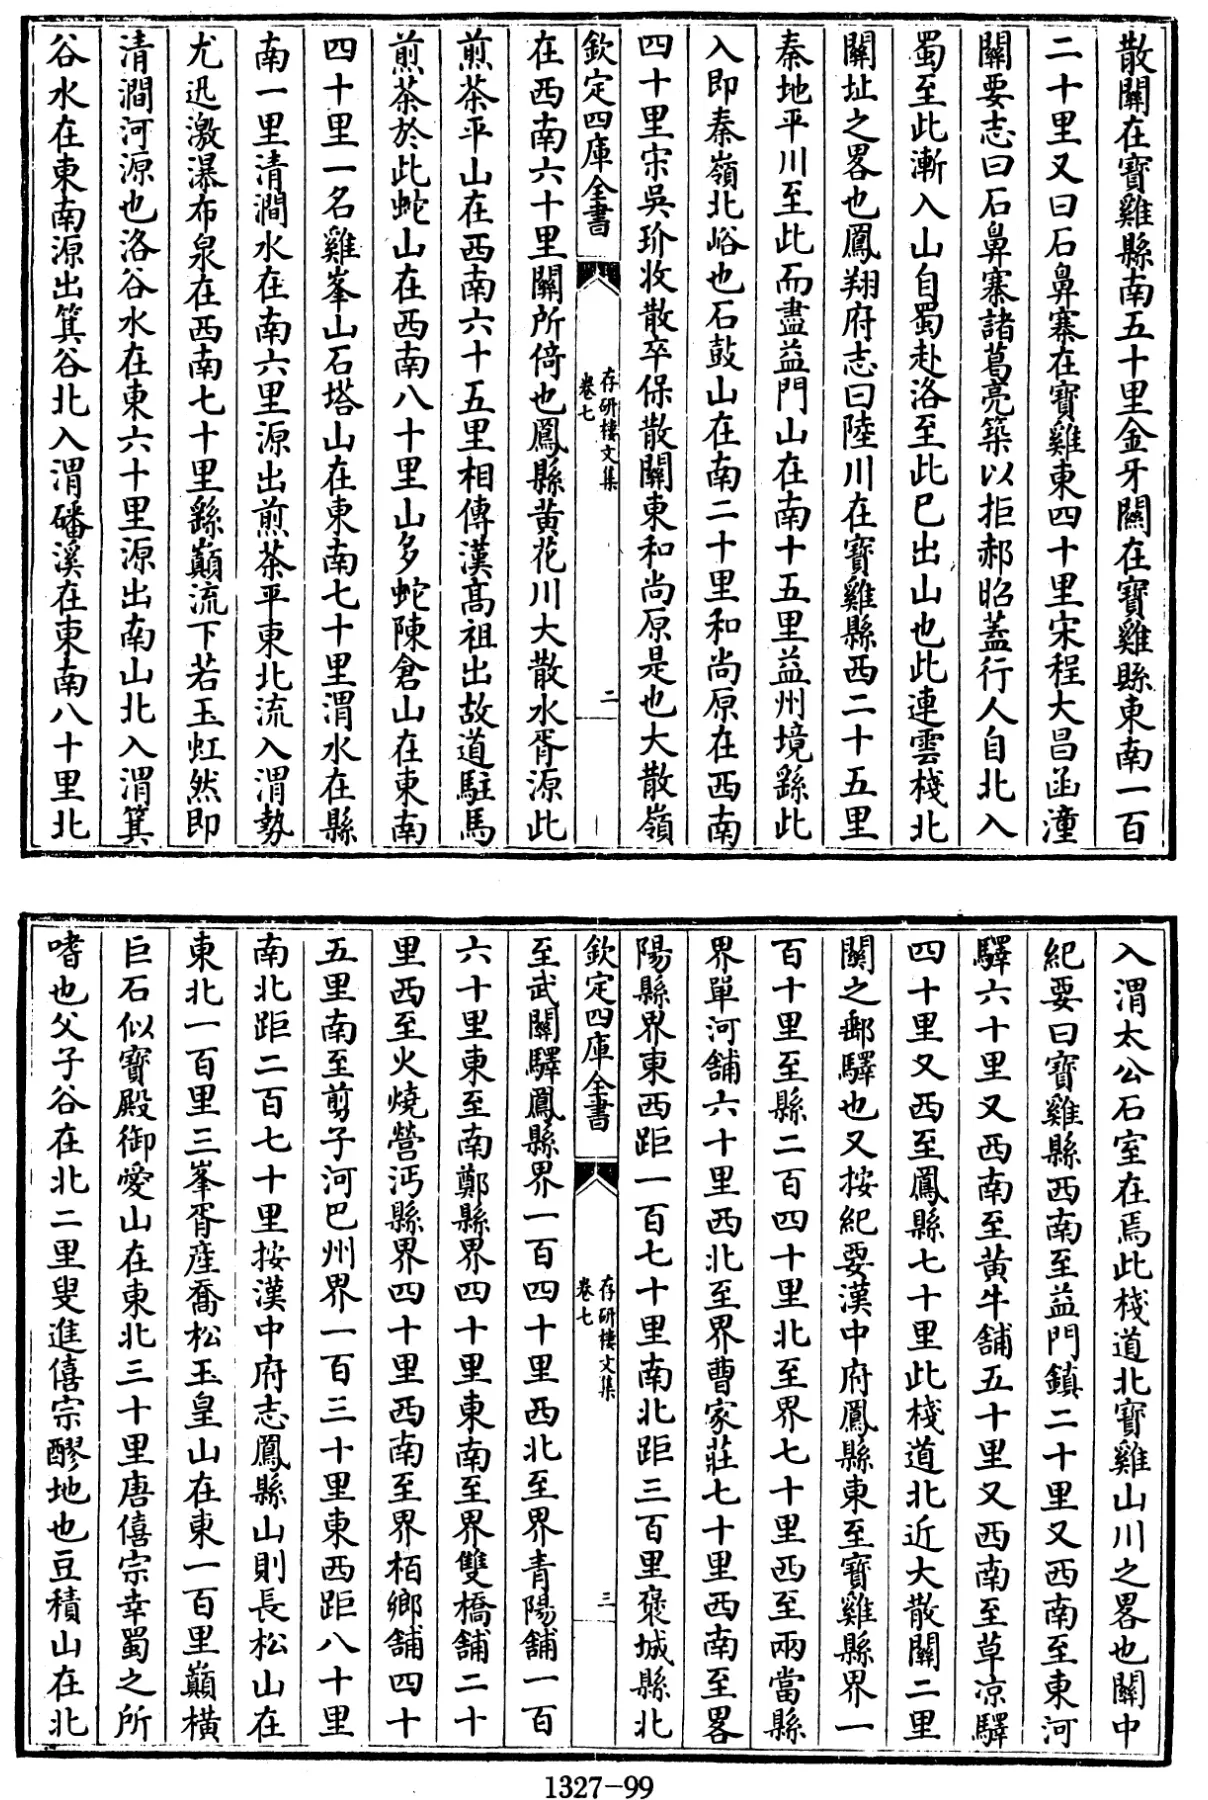 散關在寶雞縣南五十里金牙關在寶雞縣東南一百
二十里又曰石鼻寨在寶雞東四十里宋程大昌函潼
關要志曰石鼻寨諸葛亮築以拒郝昭蓋行人自北入
蜀至此漸入山自蜀赴洛至此巳出山也此連雲棧北
關址之畧也鳳翔府志曰陸川在寶雞縣西二十五里
秦地平川至此而盡益門山在南十五里益州境繇此
入即秦嶺北峪也石鼓山在南二十里和尚原在西南
四十里宋吳玠收散卒保散關東和尚原是也大散嶺
欽定四庫全書
存研樓文集
卷七
二
在西南六十里關所倚也鳳縣黃花川大散水胥源此
煎茶平山在西南六十五里相傳漢高祖出故道駐馬
煎茶於此蛇山在西南八十里山多蛇陳倉山在東南
四十里一名雞峯山石塔山在東南七十里渭水在縣
南一里清澗水在南六里源出煎茶平東北流入渭勢
尤迅激瀑布泉在西南七十里繇巔流下若玉虹然即
清澗河源也洛谷水在東六十里源出南山北入渭箕
谷水在東南源出箕谷北入渭磻溪在東南八十里北
入渭太公石室在焉此棧道北寶雞山川之畧也關中
紀要曰寶雞縣西南至益門鎮二十里又西南至東河
驛六十里又西南至黃牛舖五十里又西南至草凉驛
四十里又西至鳳縣七十里此棧道北近大散關二里
關之郵驛也又按紀要漢中府鳳縣東至寶雞縣界一
百十里至縣二百四十里北至界七十里西至兩當縣
界單河舖六十里西北至界曹家莊七十里西南至畧
陽縣界東西距一百七十里南北距三百里褒城縣北
欽定四庫全書
存研樓文集
卷七
三
至武關驛鳳縣界一百四十里西北至界青陽舖一百
六十里東至南鄭縣界四十里東南至界雙橋舖二十
里西至火燒營沔縣界四十里西南至界栢鄉舖四十
五里南至剪子河巴州界一百三十里東西距八十里
南北距二百七十里按漢中府志鳳縣山則長松山在
東北一百里三峯胥産喬松玉皇山在東一百里巔橫
巨石似寶殿御愛山在東北三十里唐僖宗幸蜀之所
嗜也父子谷在北二里叟進僖宗醪地也豆積山在北
1327-99